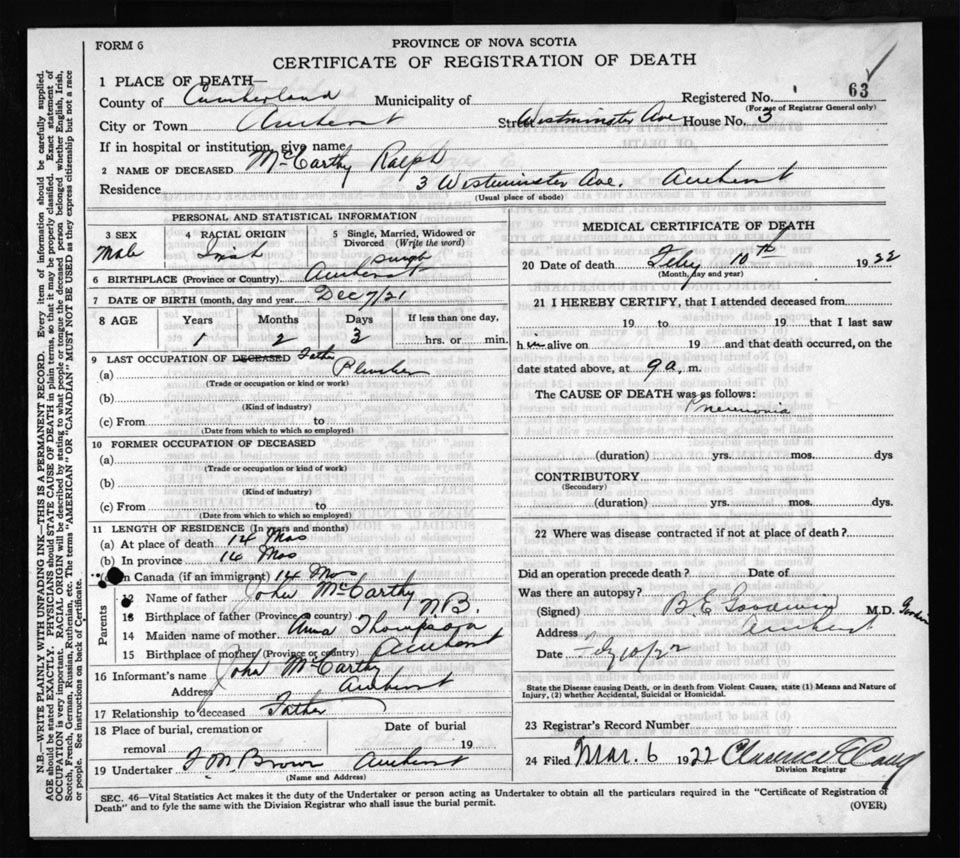 FORM 6
PROVINCE OF NOVA SCOTIA
CERTIFICATE OF REGISTRATION OF DEATH
1 PLACE OF DEATH—
County of Cumberland Municipality of Registered No. 63
(For use of Registrar General only)
City or Town Amherst Street Westminster Ave House No. 3
If in hospital or institution, give name
2 NAME OF DECEASED McCarthy Ralph
Residence 3 Westminster Ave. Amherst
(Usual place of abode)
PERSONAL AND STATISTICAL INFORMATION
3 SEX Male
4 RACIAL ORIGIN Irish
5 Single, Married, Widowed or Divorced (Write the word) Single
6 BIRTHPLACE (Province or Country) Amherst
7 DATE OF BIRTH (month, day and year) Dec 7/21
8 AGE Years Months Days If less than one day,
1 2 3 hrs. or min.
9 LAST OCCUPATION OF DECEASED Father
(a) Plumber
(Trade or occupation or kind or work)
(b)
(Kind of industry)
(c) From to
(Date from which to which so employed)
10 FORMER OCCUPATION OF DECEASED
(a)
(Trade or occupation or kind of work)
(b)
(Kind of industry)
(c) From to
(Date from which to which so employed)
11 LENGTH OF RESIDENCE (In years and months)
(a) At place of death 14 Mos
(b) In province 14 Mos
In Canada (if an immigrant) 14 Mos
Parents
12 Name of father John McCarthy
13 Birthplace of father (Province or country) N.B.
14 Maiden name of mother Anna Thompson
15 Birthplace of mother (Province or country) Amherst
16 Informant's name John McCarthy
Address Amherst
17 Relationship to deceased Father
18 Place of burial, cremation or removal Date of burial 19
19 Undertaker Brown Amherst
(Name and Address)
MEDICAL CERTIFICATE OF DEATH
20 Date of death Feby 10th 1922
(Month, day and year)
21 I HEREBY CERTIFY, that I attended deceased from
19 to 19 that I last saw
him alive on 19 and that death occurred, on the
date stated above, at 9 a. m.
The CAUSE OF DEATH was as follows:
Pneumonia
(duration) yrs. mos. dys
CONTRIBUTORY
(Secondary)
(duration) yrs. mos. dys.
22 Where was disease contracted if not at place of death?
Did an operation precede death? Date of
Was there an autopsy?
(Signed) B E Goodwin M.D.
Address Amherst
Date Feby 10/22
State the Disease causing Death, or in death from Violent Causes, state (1) Means and Nature of
Injury, (2) whether Accidental, Suicidal or Homicidal.
23 Registrar's Record Number
24 Filed Mar. 6 1922 Clarence E
Division Registrar
SEC. 46—Vital Statistics Act makes it the duty of the Undertaker or person acting as Undertaker to obtain all the particulars required in the "Certificate of Registration of
Death" and to fyle the same with the Division Registrar who shall issue the burial permit. (OVER)
N.B.—WRITE PLAINLY WITH UNFADING INK—THIS IS A PERMANENT RECORD. Every item of information should be carefully supplied.
AGE should be stated EXACTLY. PHYSICIANS should STATE CAUSE OF DEATH in plain terms, so that it may be properly classified. Exact statement of
OCCUPATION is very important. RACIAL ORIGIN will be described by stating to what people or tongue the deceased person belonged whether English, Irish,
Scotch, French, German, Russian, Ruthenian, etc. The terms "AMERICAN" OR "CANADIAN" MUST NOT BE USED as they express citizenship but not a race
or people. See instructions on back of Certificate.